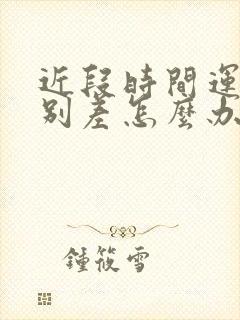 近段時間運
別差怎麼办
鍾筱雪